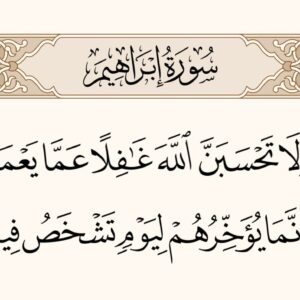 سُورَةُ إِبْرَاهِيمَ
لَا تَحْسَبَنَّ ٱللَّهَ غَٰفِلًا عَمَّا يَعْمَ
نَّمَا يُؤَخِّرُهُمْ لِيَوْمٍ تَشْخَصُ فِي